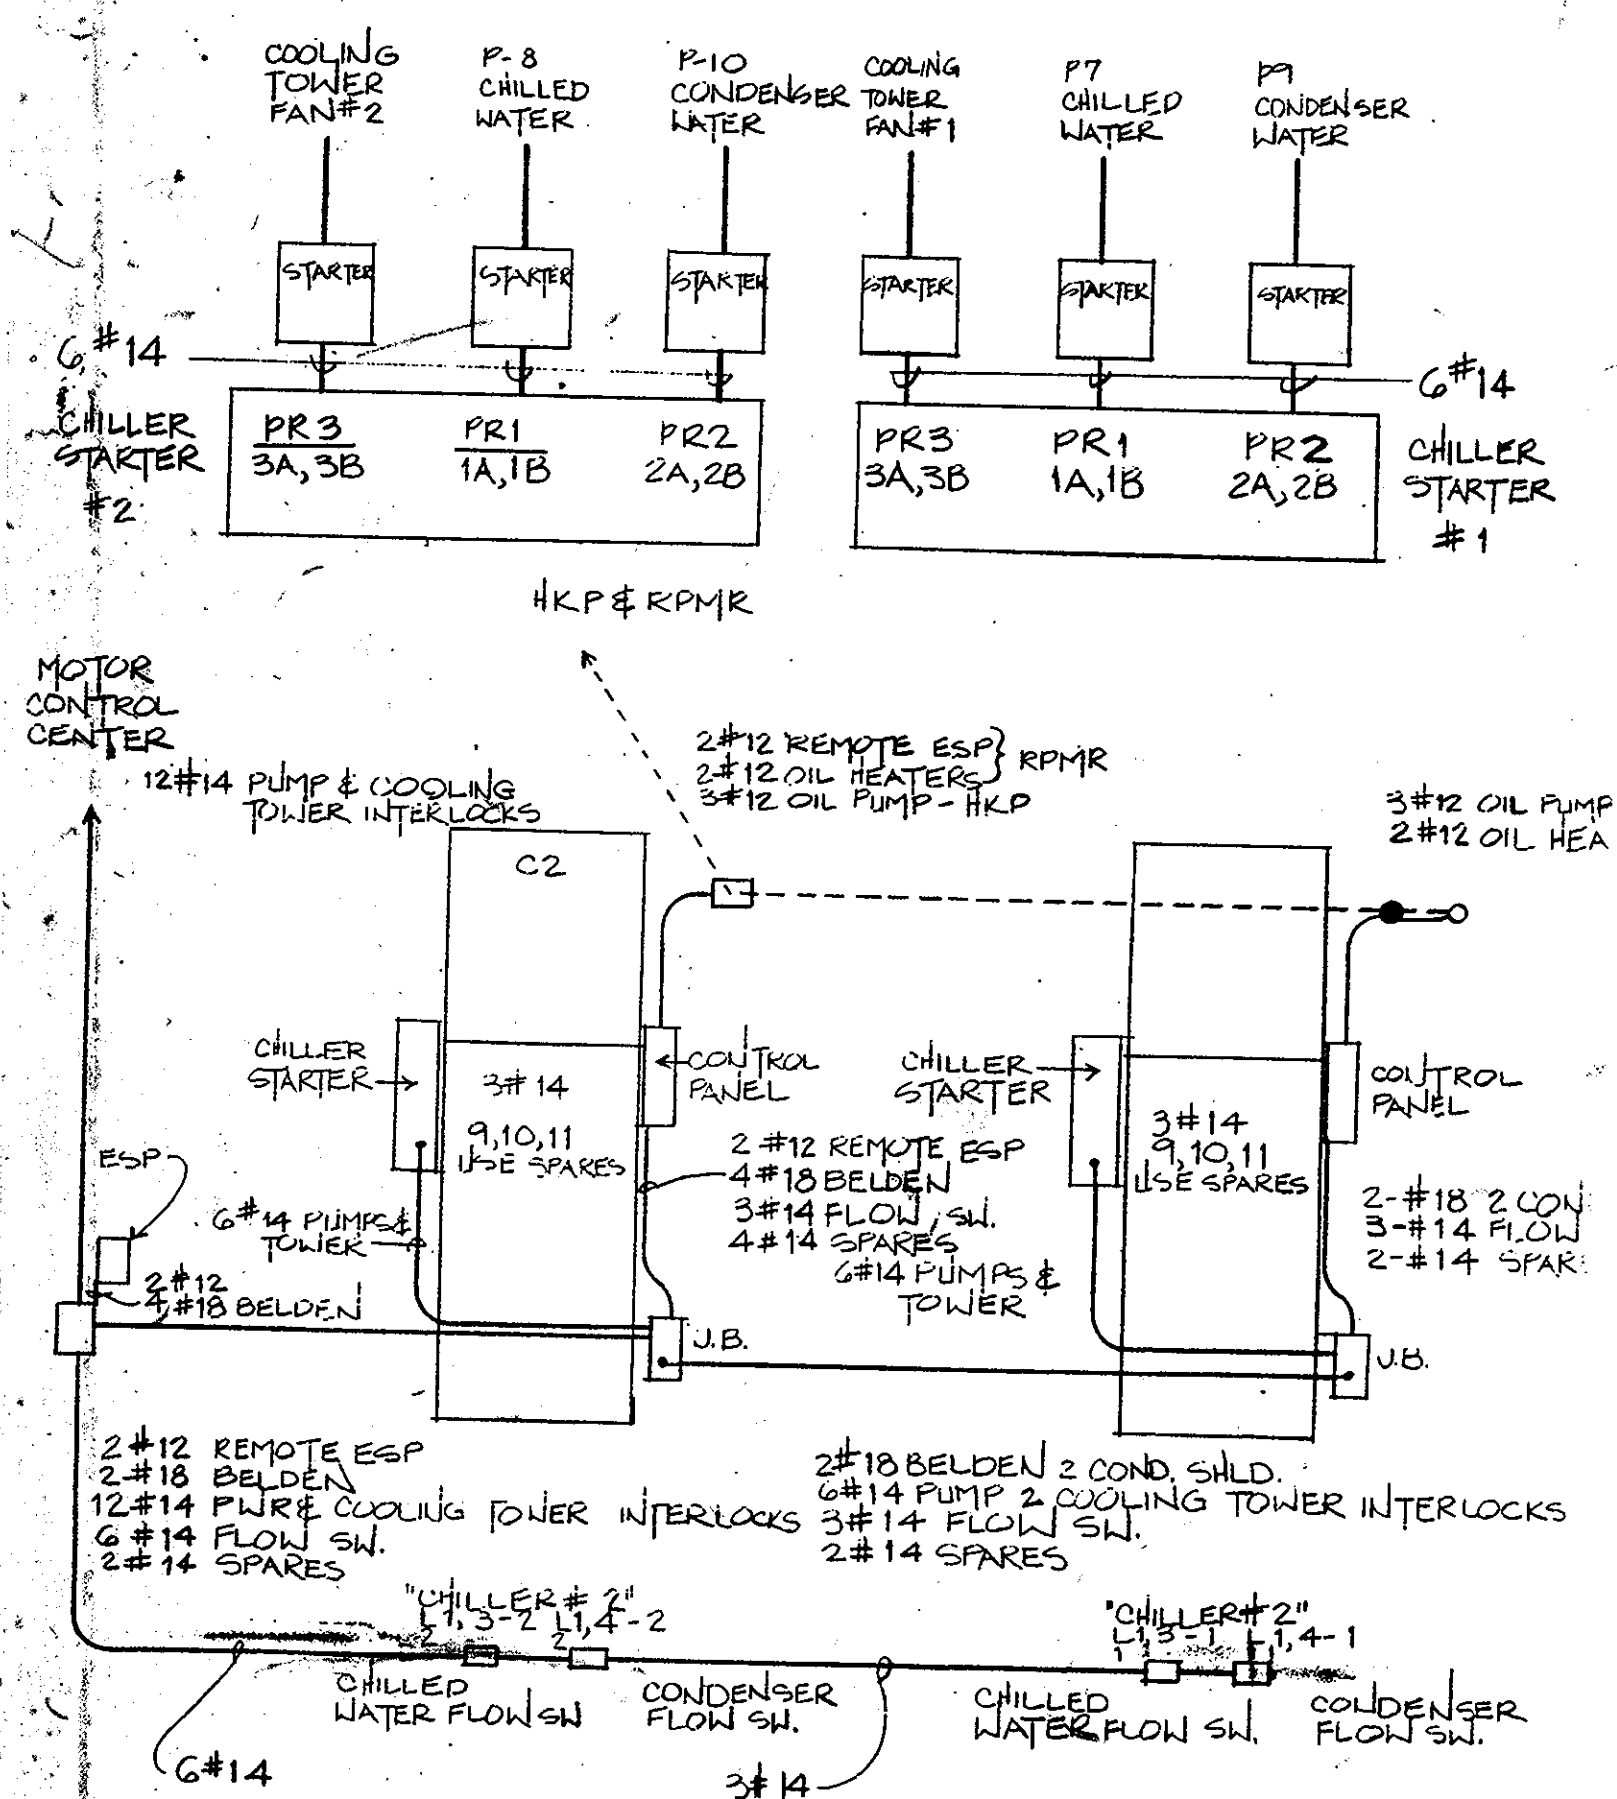 COOLING
TOWER
FAN#2
P-8
CHILLED
WATER
P-10
CONDENSER
WATER
COOLING
TOWER
FAN#1
P7
CHILLED
WATER
P9
CONDENSER
WATER
STARTER
STARTER
STARTER
STARTER
STARTER
STARTER
6,#14
6#14
CHILLER
STARTER
#2
PR3
3A,3B
PR1
1A,1B
PR2
2A,2B
PR3
3A,3B
PR1
1A,1B
PR2
2A,2B
CHILLER
STARTER
#1
HKP & RPMR
MOTOR
CONTROL
CENTER
12#14 PUMP & COOLING
TOWER INTERLOCKS
2#12 REMOTE ESP} RPMR
2#12 OIL HEATERS
3#12 OIL PUMP-HKP
3#12 OIL PUMP
2#12 OIL HEA
C2
CHILLER
STARTER
3#14
9,10,11
USE SPARES
CONTROL
PANEL
CHILLER
STARTER
3#14
9,10,11
USE SPARES
CONTROL
PANEL
ESP
6#14 PUMPS &
TOWER
2 #12 REMOTE ESP
4#18 BELDEN
3#14 FLOW, SW.
4#14 SPARES
6#14 PUMPS &
TOWER
2-#18 2 CON
3-#14 FLOW
2-#14 SPAR
2#12
4 #18 BELDEN
J.B.
J.B.
2#12 REMOTE ESP
2-#18 BELDEN
12#14 PWR & COOLING TOWER INTERLOCKS
6 #14 FLOW SW.
2#14 SPARES
2#18 BELDEN 2 COND. SHLD.
6#14 PUMP 2 COOLING TOWER INTERLOCKS
3#14 FLOW SW.
2#14 SPARES
"CHILLER# 2"
L1, 3-2 L1, 4-2
2 2
"CHILLER#2"
L1, 3-1 L1, 4-1
1 1
CHILLED
WATER FLOW SW
CONDENSER
FLOW SW.
CHILLED
WATER FLOW SW.
CONDENSER
FLOW SW.
6#14
3#14